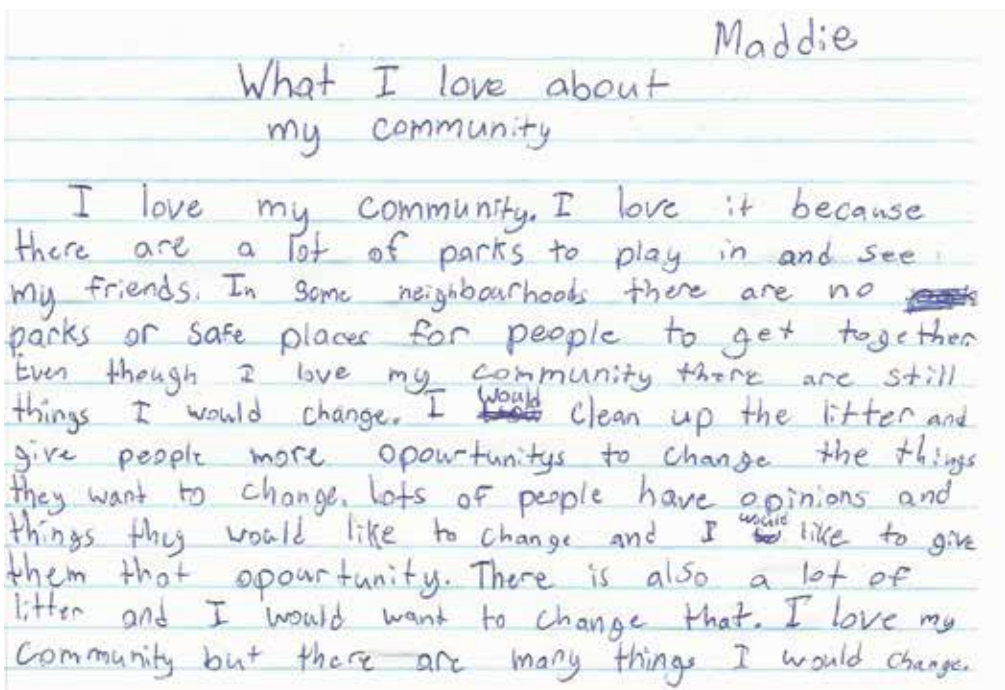 Maddie
What I love about
my community
I love my community. I love it because
there are a lot of parks to play in and see
my friends. In some neighbourhoods there are no
parks or safe places for people to get together
Even though I love my community there are still
things I would change. I would clean up the litter and
give people more opourtunitys to change the things
they want to change. lots of people have opinions and
things they would like to change and I would like to give
them that opourtunity. There is also a lot of
litter and I would want to change that. I love my
community but there are many things I would change.